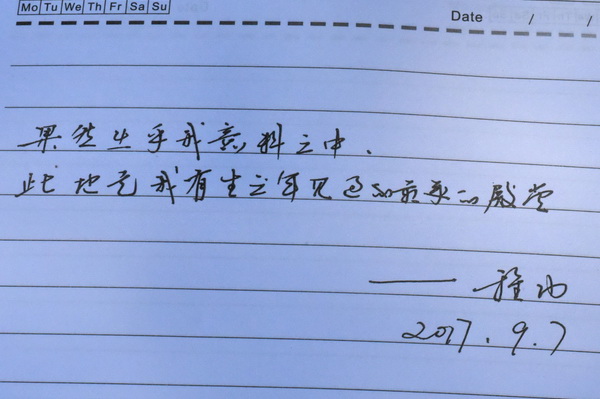 Mo Tu We Th Fr Sa Su
Date / /
果然出乎我意料之中.
此地是我有生之年见过的最美的殿堂
——
2017.9.7